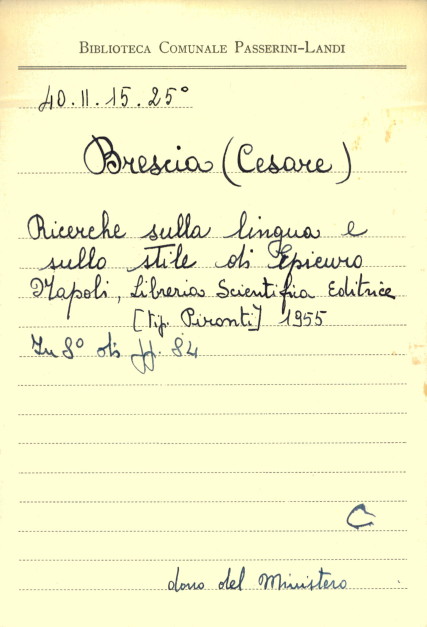 BIBLIOTECA COMUNALE PASSERINI-LANDI
40.II.15.25°
Brescia (Cesare)
Ricerche sulla lingua e
sullo stile di Epicuro
Napoli, Libreria Scientifia Editrice
[tip. Pironti] 1955
In 8° di pp. 84
C
dono del Ministero